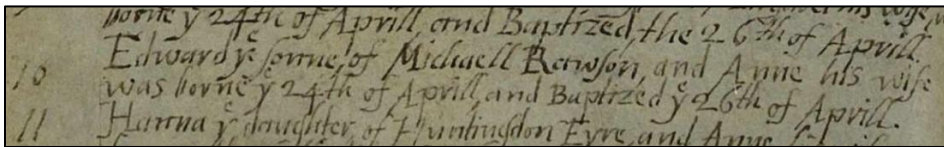 borne yᵉ 24th of Aprill, and Baptized, the 26th of Aprill.
10 Edward yᵉ sonne, of Michaell Rawson, and Anne his wife
was borne yᵉ 24th of Aprill, and Baptized yᵉ 26th of Aprill.
11 Hanna yᵉ daughter, of Huntingdon Eyre, and Anne